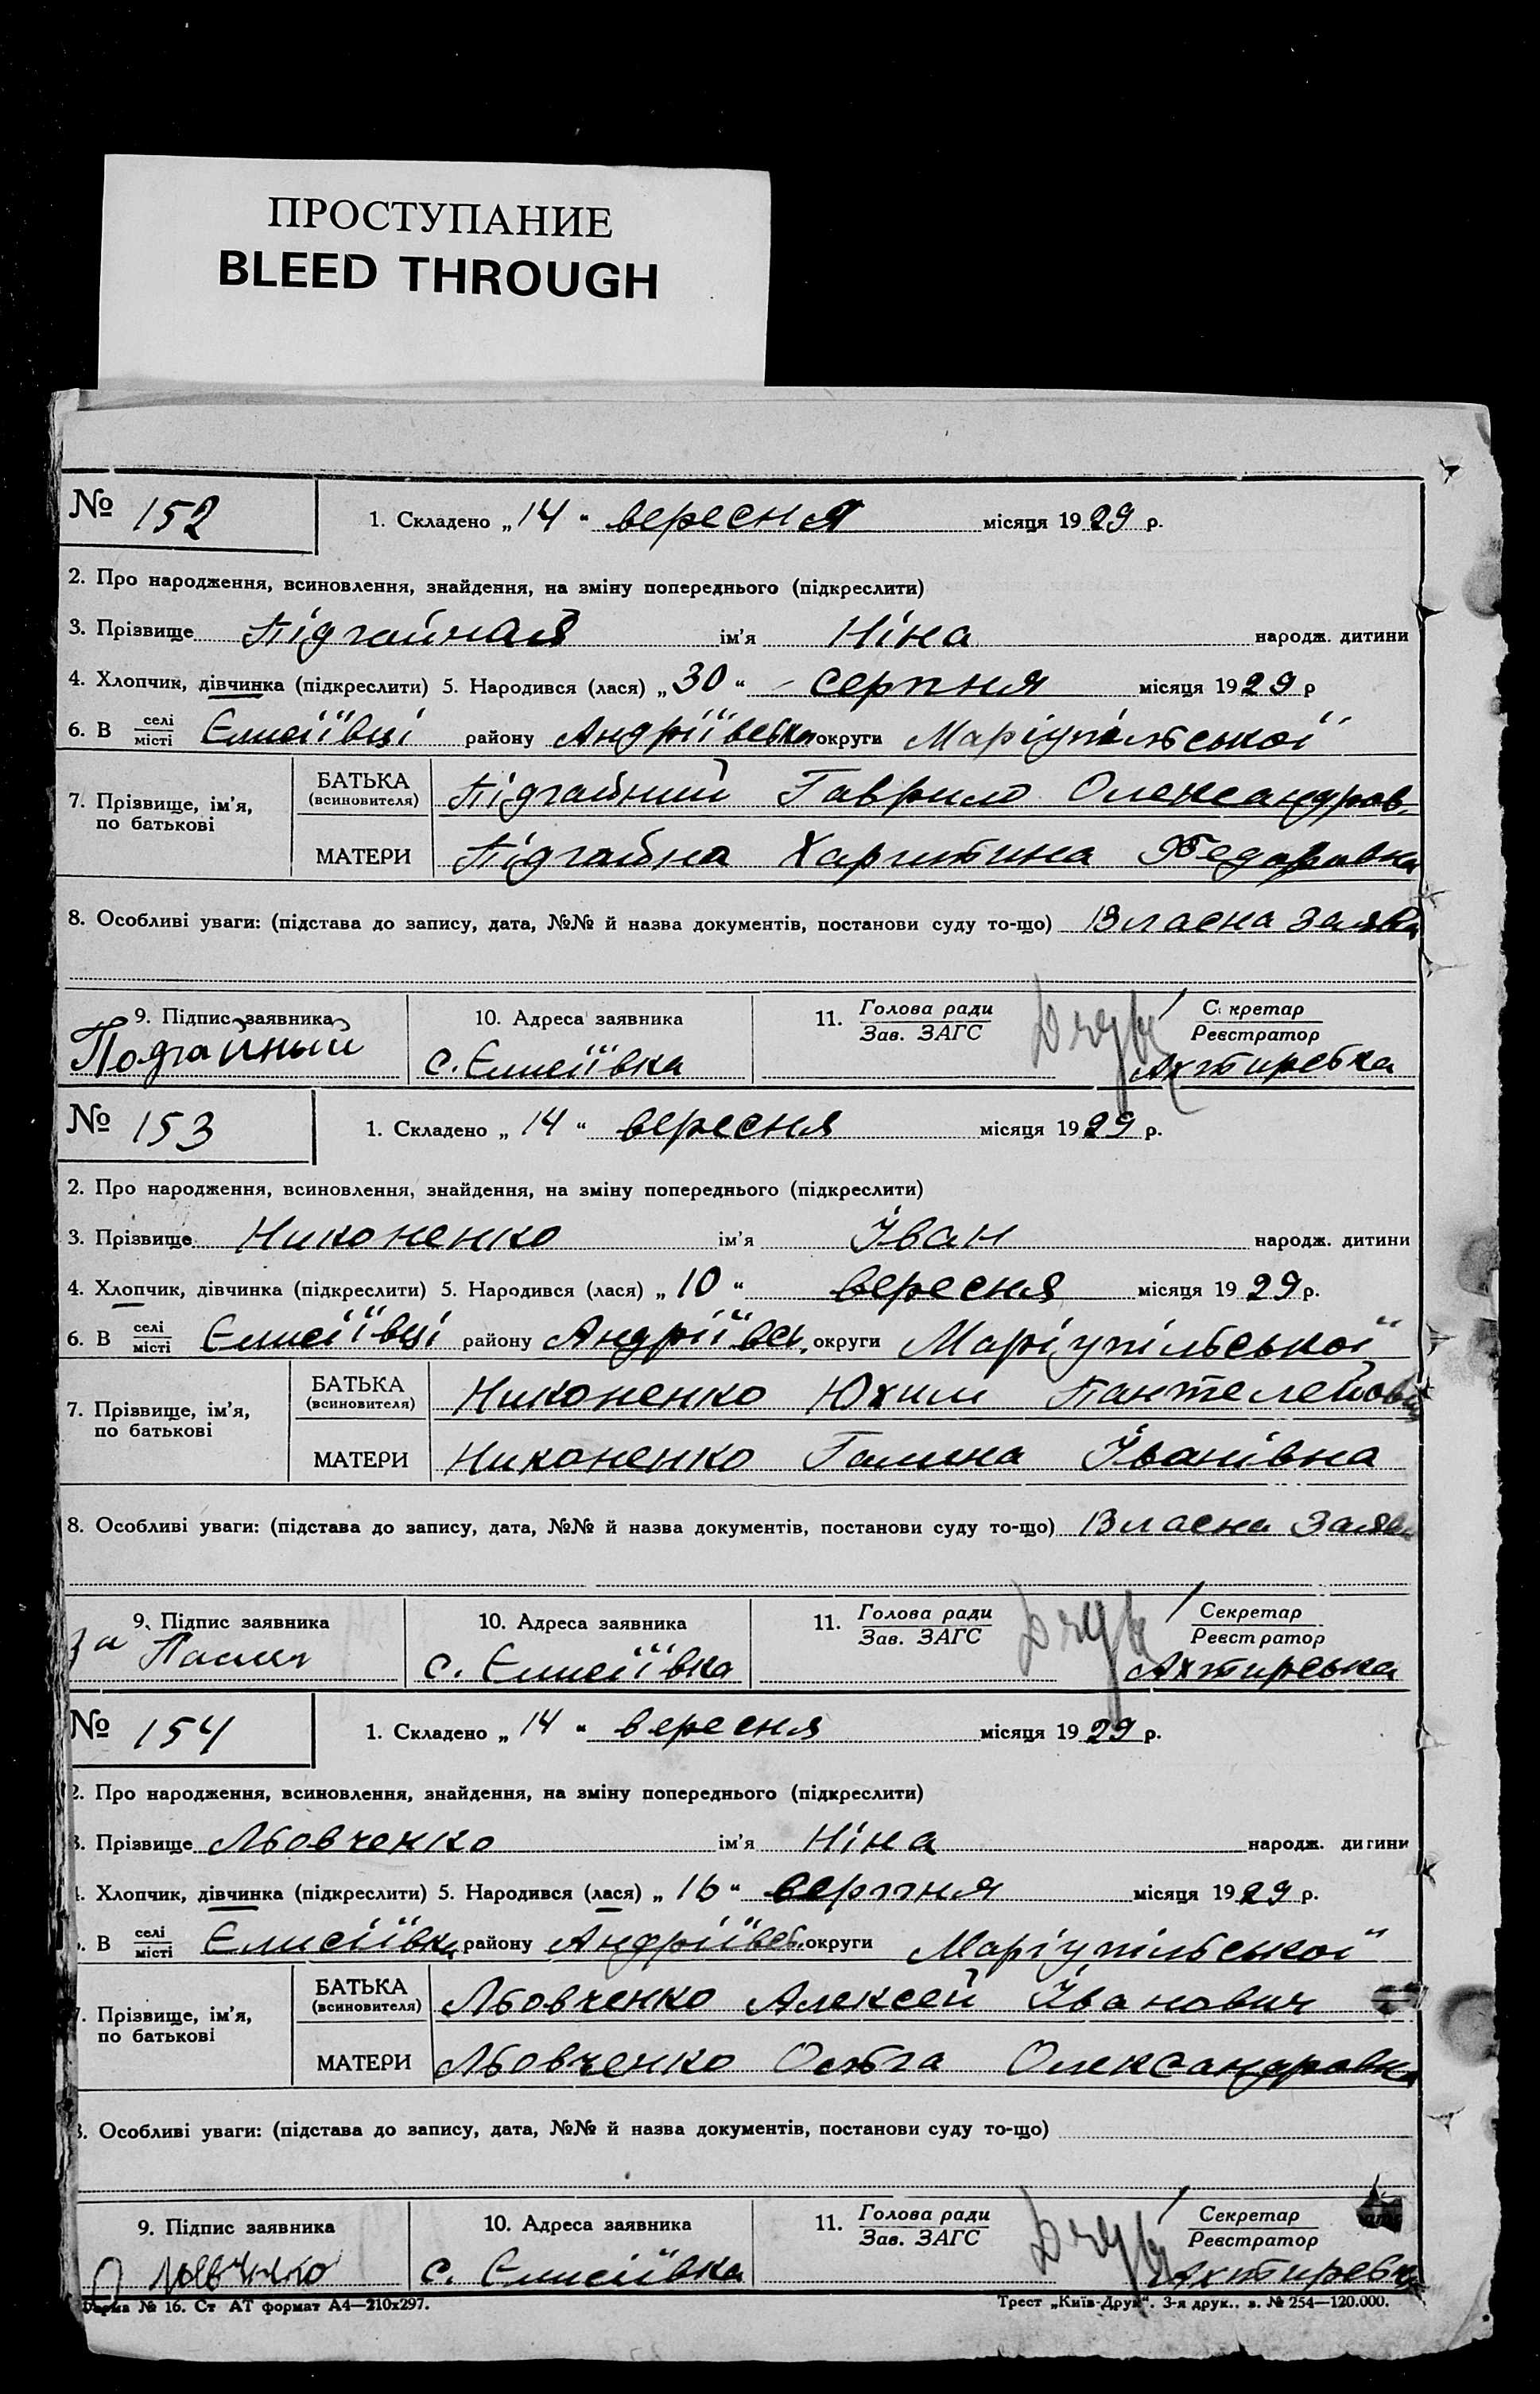 ПРОСТУПАНИЕ
BLEED THROUGH
№ 152
1. Складено „14“ вересня місяця 1929 р.
2. Про народження, всиновлення, знайдення, на зміну попереднього (підкреслити)
3. Прізвище Підгайная ім'я Ніна народж. дитини
4. Хлопчик, дівчинка (підкреслити) 5. Народився (лася) „30“ серпня місяця 1929 р
6. В селі місті Єлисіївці району Андріївськ округи Маріупільської
7. Прізвище, ім'я, по батькові
БАТЬКА (всиновителя) Підгайний Гаврило Олександров.
МАТЕРИ Підгайна Харитина Федоровна
8. Особливі уваги: (підстава до запису, дата, №№ й назва документів, постанови суду то-що) Власна заява
9. Підпис заявника
Подгайный
10. Адреса заявника
с. Єлисіївка
11. Голова ради
Зав. ЗАГС
Секретар
Реєстратор
Ахтирська
№ 153
1. Складено „14“ вересня місяця 1929 р.
2. Про народження, всиновлення, знайдення, на зміну попереднього (підкреслити)
3. Прізвище Никоненко ім'я Іван народж. дитини
4. Хлопчик, дівчинка (підкреслити) 5. Народився (лася) „10“ вересня місяця 1929 р.
6. В селі місті Єлисіївці району Андріївськ. округи Маріупільської
7. Прізвище, ім'я, по батькові
БАТЬКА (всиновителя) Никоненко Юхим Пантелейович
МАТЕРИ Никоненко Галина Іванівна
8. Особливі уваги: (підстава до запису, дата, №№ й назва документів, постанови суду то-що) Власна заява
9. Підпис заявника
за
10. Адреса заявника
с. Єлисіївка
11. Голова ради
Зав. ЗАГС
Секретар
Реєстратор
Ахтирська
№ 154
1. Складено „14“ вересня місяця 1929 р.
2. Про народження, всиновлення, знайдення, на зміну попереднього (підкреслити)
3. Прізвище Льовченко ім'я Ніна народж. дитини
4. Хлопчик, дівчинка (підкреслити) 5. Народився (лася) „16“ серпня місяця 1929 р.
6. В селі місті Єлисіївка району Андріївсь. округи Маріупільської
7. Прізвище, ім'я, по батькові
БАТЬКА (всиновителя) Льовченко Алексей Іванович
МАТЕРИ Льовченко Ольга Олександровна
8. Особливі уваги: (підстава до запису, дата, №№ й назва документів, постанови суду то-що)
9. Підпис заявника
10. Адреса заявника
с. Єлисіївка
11. Голова ради
Зав. ЗАГС
Секретар
Реєстратор
Ахтирська
Форма № 16. Ст АТ формат А4—210х297.
Трест „Київ-Друк“. 3-я друк.. з. № 254—120.000.